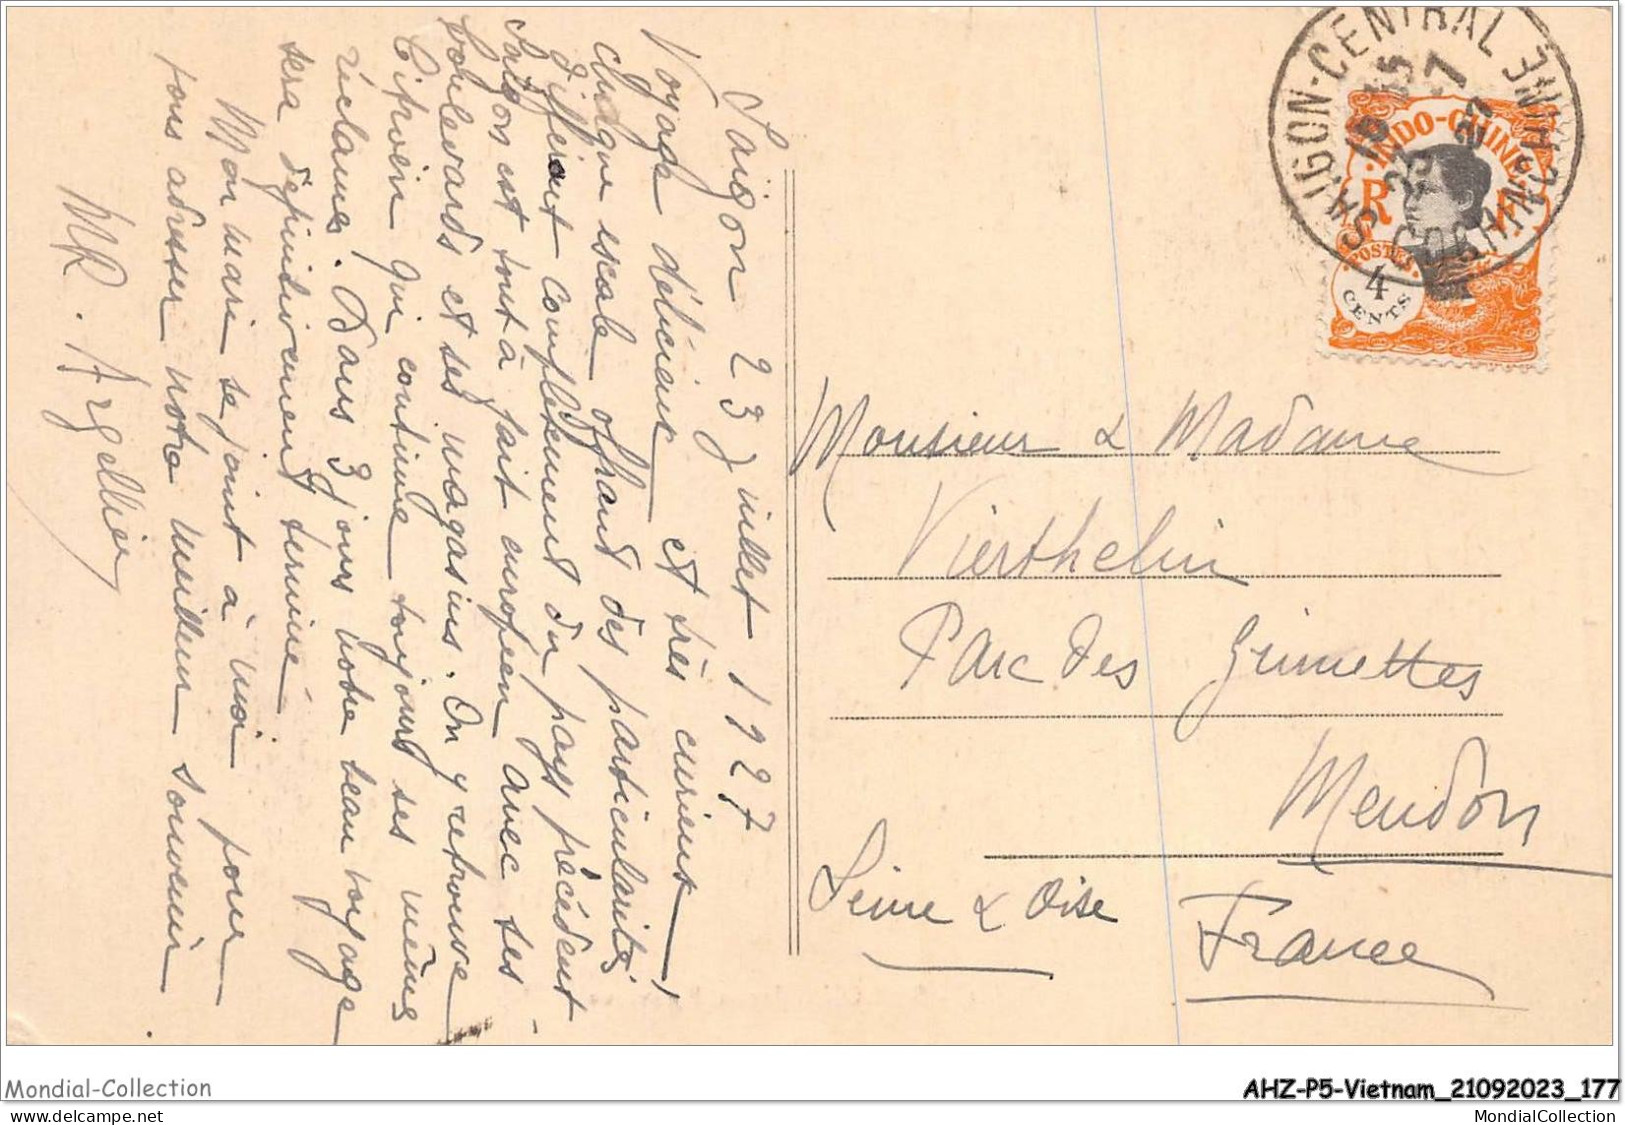 Saigon 23 juillet 1927
Voyage délicieux et très curieux,
chaque escale offrant des particularités
différant complètement du pays précédent
Saïgon est tout à fait européen avec ses
boulevards et ses magasins. On y retrouve
qui continue toujours ses mêmes
réclames. Dans 3 jours notre beau voyage
sera définitivement terminé
Mon mari se joint à moi pour
vous adresser notre meilleur souvenir
MR. Argellier
SAIGON-CENTRAL
COCHINCHINE
23 -7
27
INDO-CHINE
R F
POSTES
4
CENTS
Monsieur & Madame
Vierthelin
Parc des Grimettes
Meudon
Seine & Oise
France
Mondial-Collection
AHZ-P5-Vietnam_21092023_177
www.delcampe.net
MondialCollection